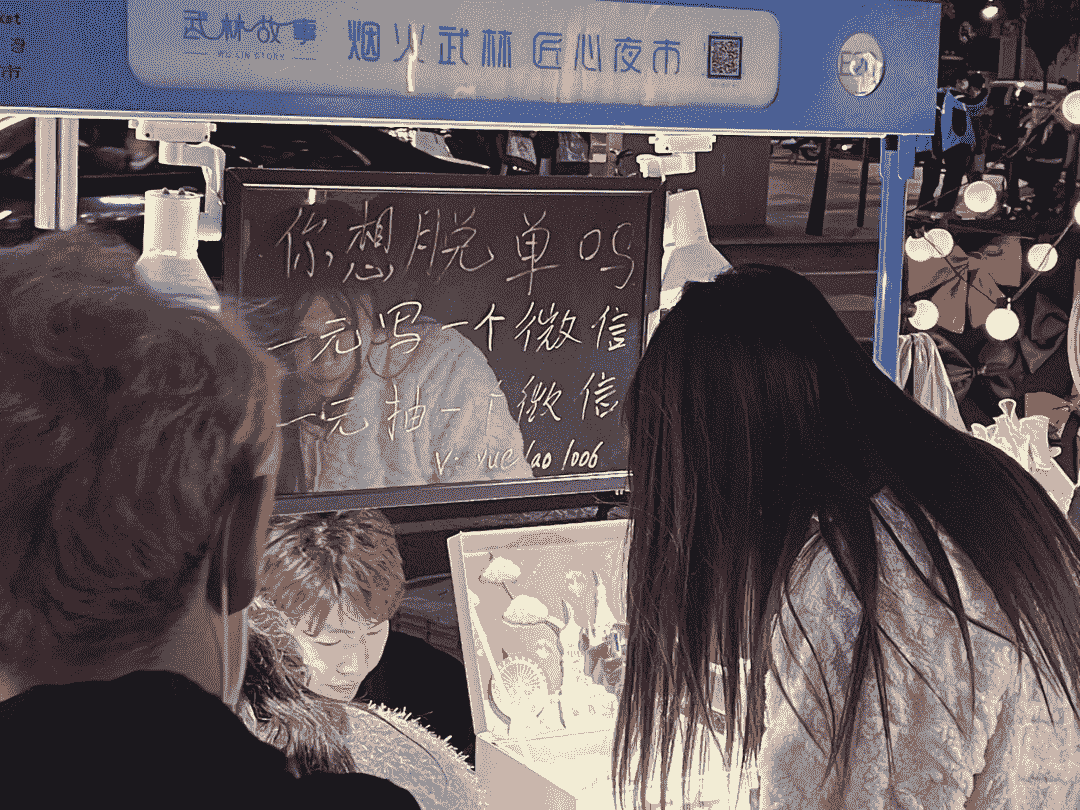 武林故事
WU LIN STORY
烟火武林 匠心夜市
你想脱单吗
一元写一个微信
一元抽一个微信
V: yuelao1006